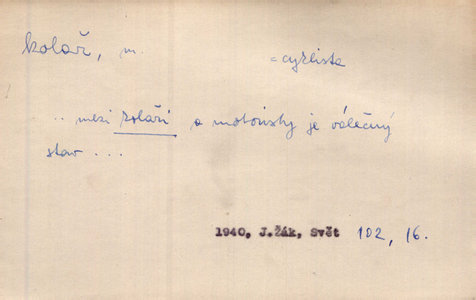 kolař, m.
= cyklista
.. mezi kolaři a motoristy je válečný
stav ...
1940, J.Žák, Svět 102, 16.